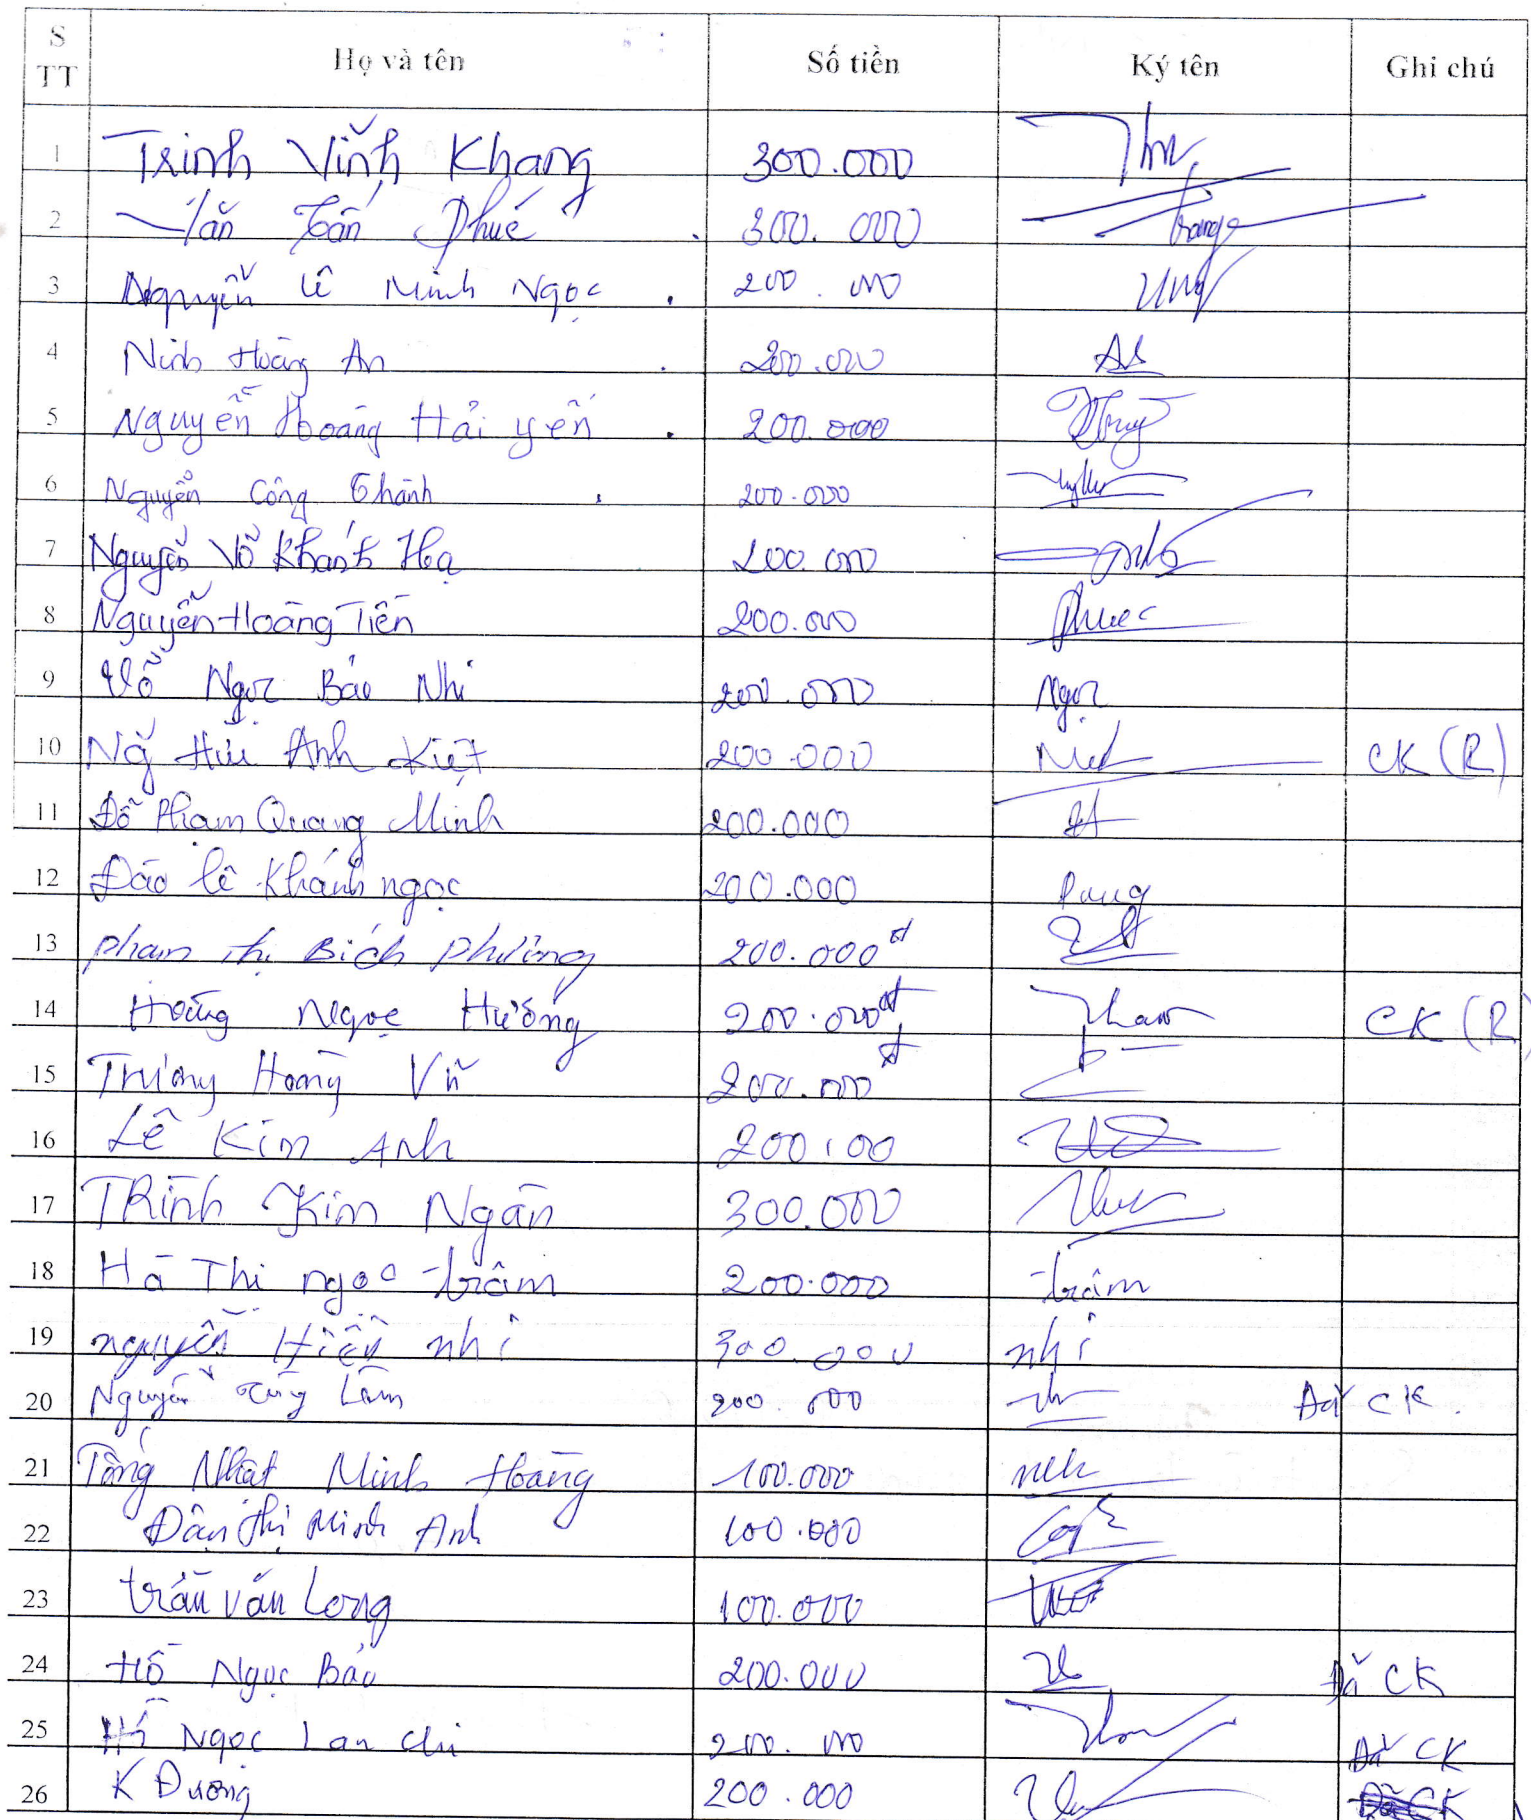 S TT Họ và tên Số tiền Ký tên Ghi chú
1 Trinh Vĩnh Khang 300.000
2 Văn Tấn Phúc 300.000 trang
3 Nguyễn Lê Minh Ngọc . 200.000
4 Ninh Hoàng An . 200.000
5 Nguyễn Hoàng Hải yến . 200.000
6 Nguyễn Công Thành . 200.000
7 Nguyễn Võ Khánh Hạ 200.000
8 Nguyễn Hoàng Tiến 200.000 Phước
9 Võ Ngọc Bảo Nhi 200.000 Ngọc
10 Ng Anh Kiệt 200.000 CK (R)
11 Đỗ Phạm Quang Minh 200.000
12 Đào lê Khánh ngọc 200.000
13 phạm thị Bích phường 200.000đ
14 Hoàng Ngọc Hường 200.000đ CK (R)
15 Trương Hoàng Vũ 200.000đ
16 Lê Kim Anh 200.00
17 TRịnh Kim Ngân 300.000
18 Hà Thị ngọc trâm 200.000 trâm
19 nguyễn Hiền nhi 300.000 nhi
20 Nguyễn Tùng Lâm 200.000 Đã CK.
21 Tống Nhật Minh Hoàng 100.000
22 Đậu thị Minh Anh 100.000
23 trần văn Long 100.000
24 Hồ Ngọc Bảo 200.000 Đã CK
25 Hồ Ngọc Lan Chi 200.000 Đã CK
26 K Dương 200.000